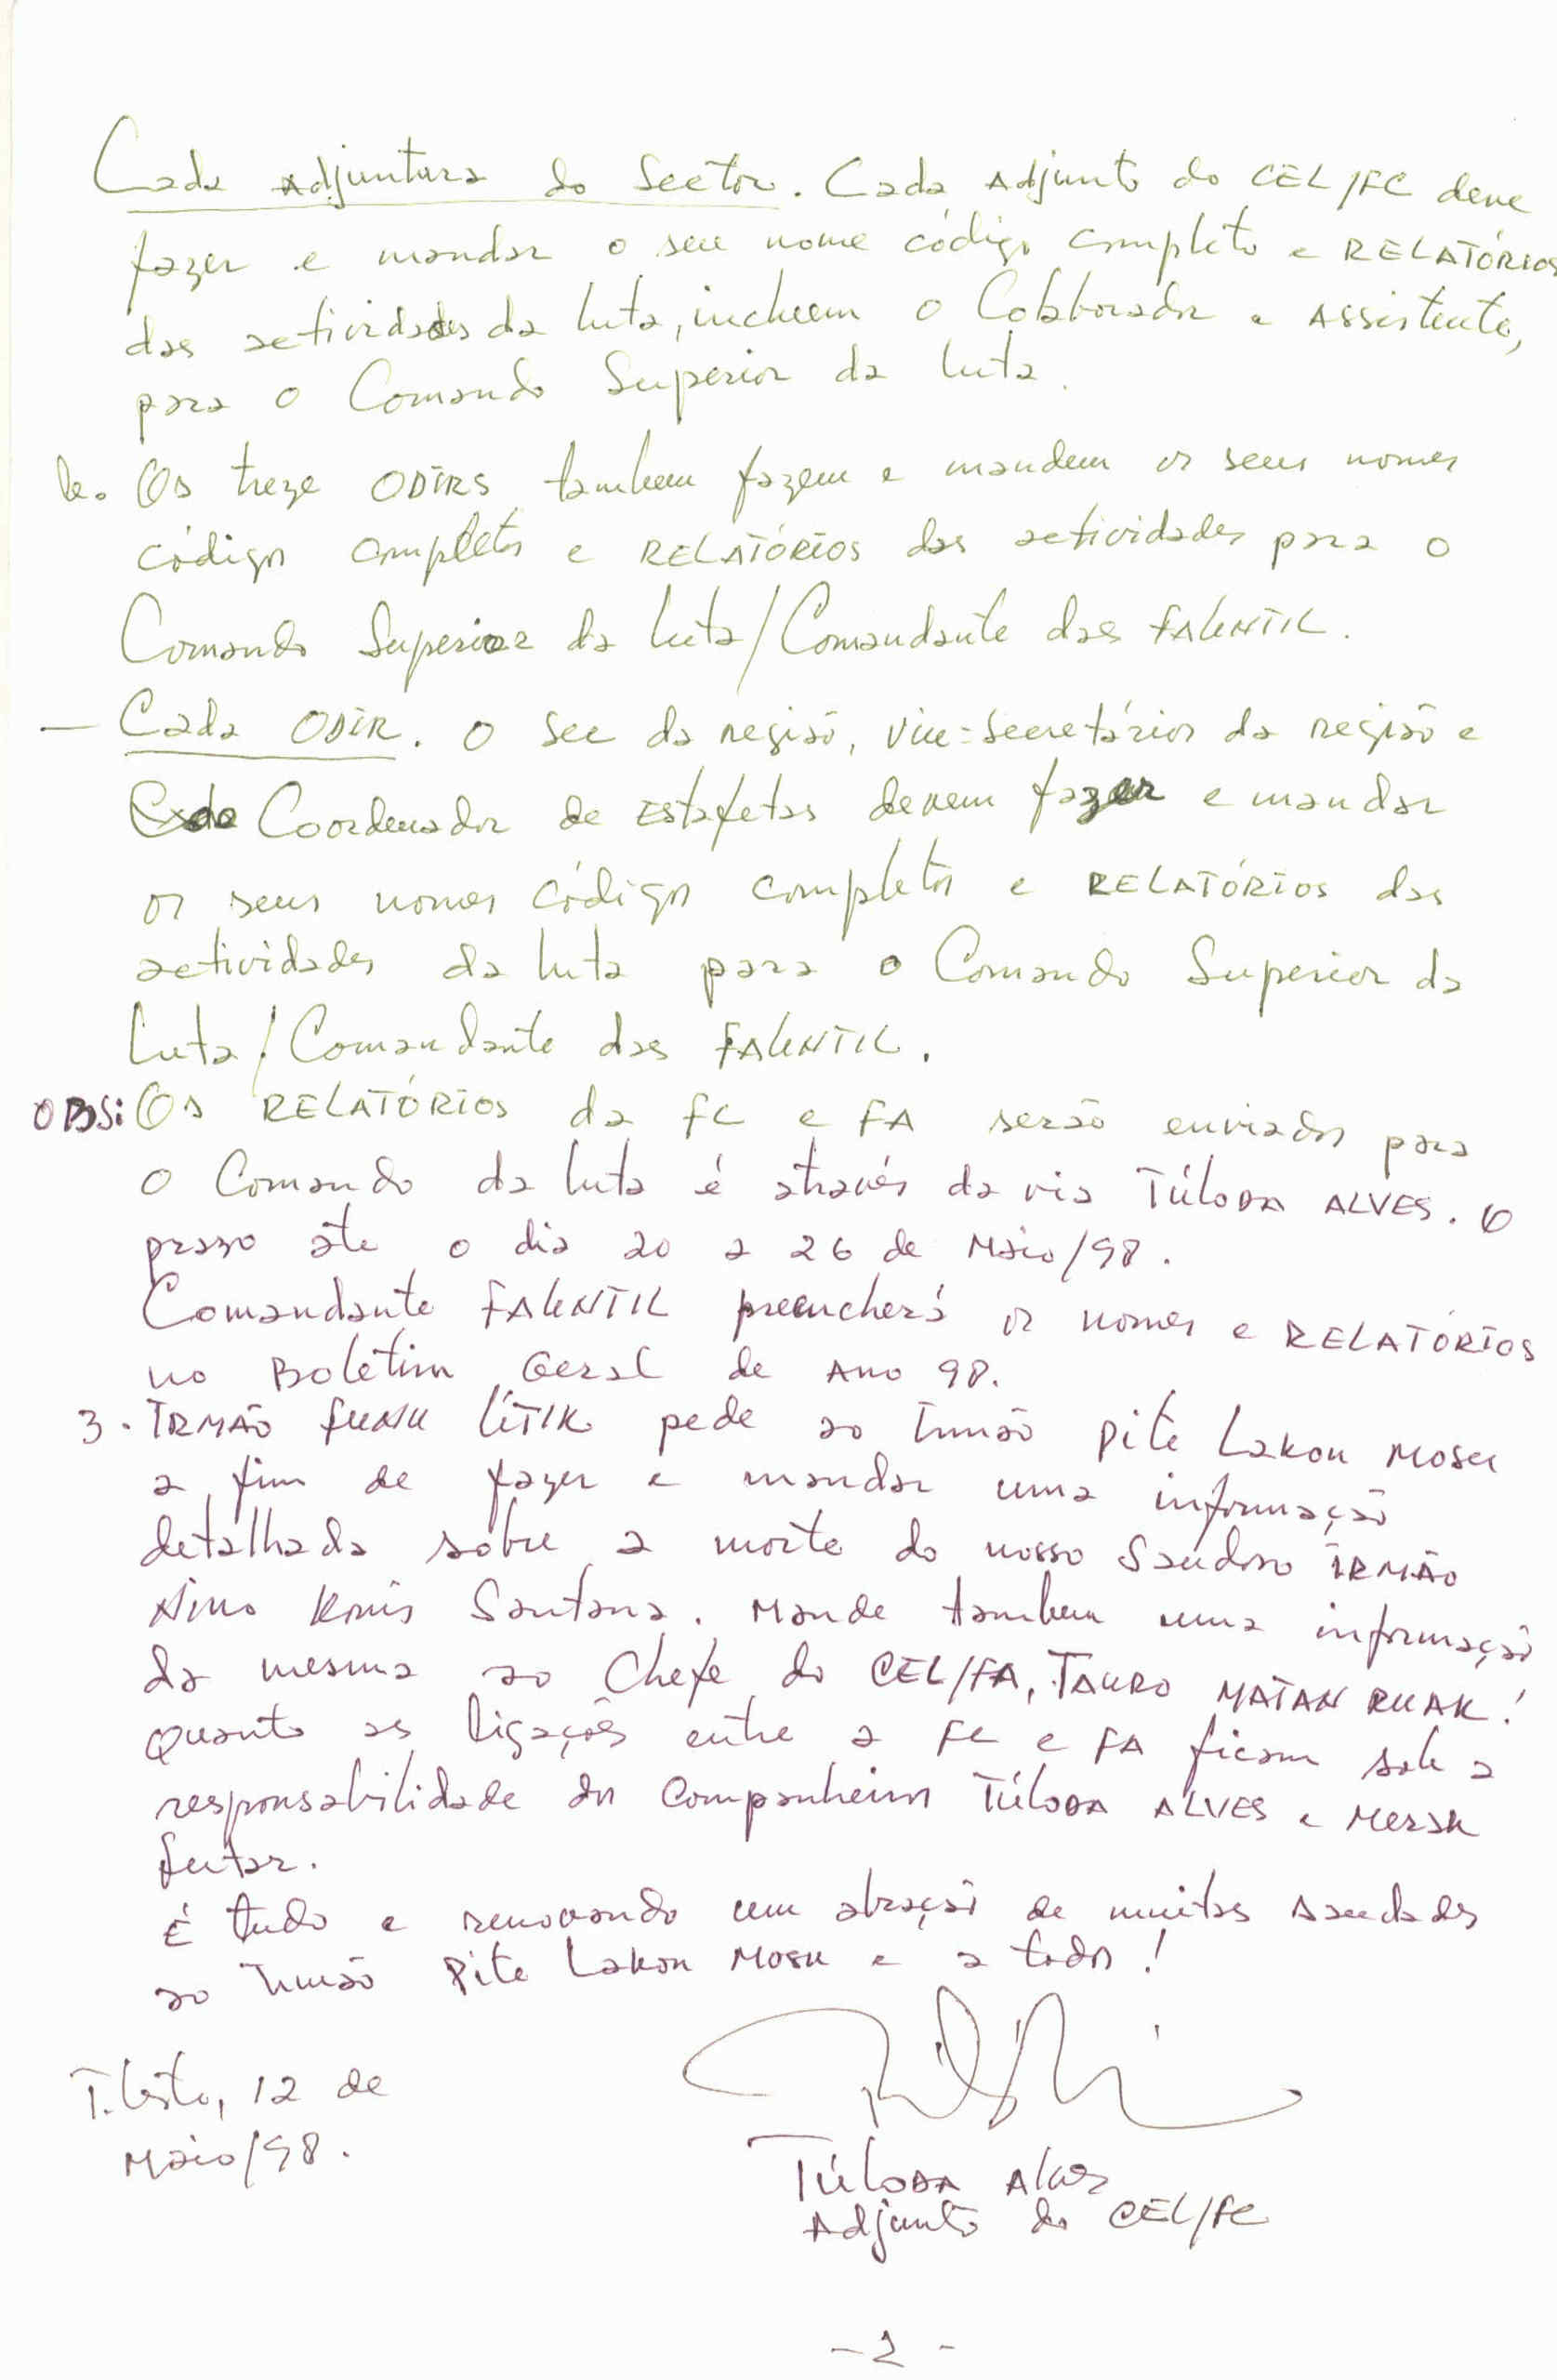 Cada Adjuntura do Sector. Cada Adjunto do CEL/FC deve
fazer e mandar o seu nome código completo e RELATÓRIOS
das actividades da luta, incluem o Colaborador e Assistente,
para o Comando Superior da luta.
b. Os treze ODIRS tambem fazem e mandem os seus nomes
códigos completos e RELATÓRIOS das actividades para o
Comando Superior da luta/Comandante das FALINTIL.
— Cada ODIR. O Sec da região, Vice-Secretários da região e
Coordenador de Estafetas devem fazer e mandar
os seus nomes códigos completos e RELATÓRIOS das
actividades da luta para o Comando Superior da
Luta/Comandante das FALINTIL.
OBS: Os RELATÓRIOS da FC e FA serão enviados para
o Comando da luta é através da via Túloda ALVES. O
prazo até o dia 20 a 26 de Maio/98.
Comandante FALINTIL preencherá os nomes e RELATÓRIOS
no Boletim Geral de Ano 98.
3. IRMÃO FUNU LÍTIK pede ao Irmão Pite Lakon Mosu
a fim de fazer e mandar uma informação
detalhada sobre a morte do nosso Saudoso IRMÃO
Nino Konis Santana. Mande tambem uma informação
da mesma ao Chefe do CEL/FA, TAURO MATAN RUAK!
Quanto as ligações entre a FC e FA ficam sob a
responsabilidade dos Companheiros Túloda ALVES e Mersu
futar.
É tudo e renovando um abração de muitas saudades
ao Irmão Pite Lakon Mosu e a todos!
T. Leste, 12 de
Maio/98.
Túloda Alves
Adjunto do CEL/FC
-2-